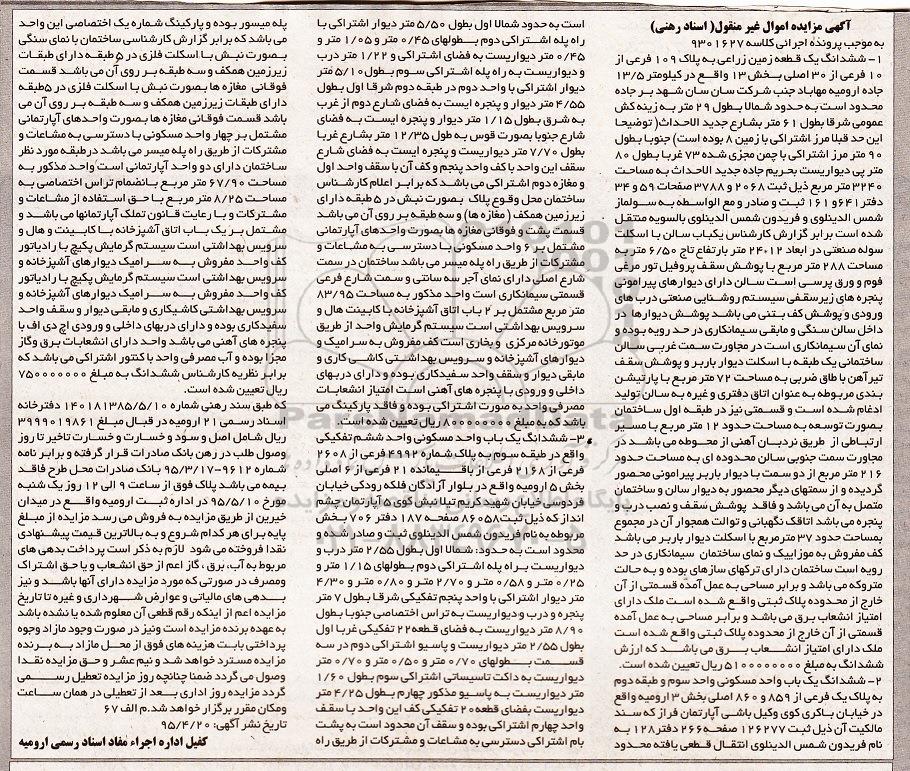 آگهی مزایده اموال غیر منقول( اسناد رهنی)
به موجب پرونده اجرائی کلاسه ۹۳۰۱۶۲۷
۱- ششدانگ یک قطعه زمین زراعی به پلاک ۱۰۹ فرعی از
۱۰ فرعی از ۳۰ اصلی بخش ۱۳ واقع در کیلومتر ۱۳/۵
جاده ارومیه مهاباد جنب شرکت سان سان شهد بر جاده
محدود است به حدود شمالا بطول ۲۹ متر به زینه کش
عمومی شرقا بطول ۶۱ متر بشارع جدید الاحداث( توضیحا
این حد قبلا مرز اشتراکی با زمین ۸ بوده است) جنوبا بطول
۹۰ متر مرز اشتراکی با چمن مجزی شده ۷۳ غربا بطول ۸۰
متر پی دیواریست بحریم جاده جدید الاحداث به مساحت
۳۲۴۰ متر مربع ذیل ثبت ۲۰۶۸ و ۳۷۸۸ صفحات ۵۹ و ۳۴
دفتر ۶۴ او ۱۶۱ ثبت و صادر و مع الواسطه به سولماز
شمس الدینلوی و فریدون شمس الدینلوی بالسویه منتقل
شده است برابر گزارش کارشناس یکباب سالن با اسکلت
سوله صنعتی در ابعاد ۱۲*۲۴ متر بارتفاع تاج ۶/۵۰ متر به
مساحت ۲۸۸ متر مربع با پوشش سقف پروفیل تور مرغی
فوم و ورق پرسی است سالن دارای دیوارهای پیرامونی
پنجره های زیرسقفی سیستم روشنایی صنعتی درب های
ورودی و پوشش کف بتنی می باشد پوشش دیوارها در
داخل سالن سنگی و مابقی سیمانکاری در حد رویه بوده و
نمای آن سیمانکاری است در مجاورت سمت غربی سالن
ساختمانی یک طبقه با اسکلت دیوار باربر و پوشش سقف
تیرآهن با طاق ضربی به مساحت ۷۲ متر مربع با پارتیشن
بندی مربوطه به عنوان اتاق دفتری و غیره به سالن تولید
ادغام شده است و قسمتی نیز در طبقه اول ساختمان
بصورت توسعه به مساحت حدود ۱۲ متر مربع با مسیر
ارتباطی از طریق نردبان آهنی از محوطه می باشد در
مجاورت سمت جنوبی سالن محدوده ای به مساحت حدود
۲۱۶ متر مربع از دو سمت با دیوار باربر پیرامونی محصور
گردیده و از سمتهای دیگر محصور به دیوار سالن و ساختمان
متصل به آن می باشد و فاقد پوشش سقف و نصب درب و
پنجره می باشد اتاقک نگهبانی و توالت همجوار آن در مجموع
بمساحت حدود ۳۷ مترمربع با اسکلت دیوار باربر می باشد
کف مفروش به موزاییک و نمای ساختمان سیمانکاری در حد
رویه است ساختمان دارای ترکهای سازهای بوده و به حالت
متروکه می باشد و برابر مساحی به عمل آمده قسمتی از آن
خارج از محدوده پلاک ثبتی واقع شده است ملک دارای
امتیاز انشعاب برق می باشد و برابر مساحی به عمل آمده
قسمتی از آن خارج از محدوده پلاک ثبتی واقع شده است
ملک دارای امتیاز انشعاب برق می باشد که ارزش
ششدانگ به مبلغ ۵۱۰۰۰۰۰۰۰۰ ریال تعیین شده است.
۲- ششدانگ یک باب واحد مسکونی واحد سوم و طبقه دوم
به پلاک یک فرعی از ۸۵۹ و ۸۶۰ اصلی بخش ۳ ارومیه واقع
در خیابان باکری کوی وکیل باشی آپارتمان فراز که سند
مالکیت آن ذیل ثبت ۱۲۶۲۷۷ صفحه ۲۶۶ دفتر ۱۲۸ به
نام فریدون شمس الدینلوی انتقال قطعی یافته محدود
است به حدود شمالا اول بطول ۵/۵۰ متر دیوار اشتراکی با
راه پله اشتراکی دوم بطولهای ۰/۴۵ متر و ۱/۰۵ متر و
۰/۴۵ متر دیواریست به فضای اشتراکی و ۱/۲۲ متر درب
و دیواریست به راه پله اشتراکی سوم بطول ۵/۱۰ متر
دیوار اشتراکی با واحد دوم در طبقه دوم شرقا اول بطول
۴/۵۵ متر دیوار و پنجره ایست به فضای شارع دوم از غرب
به شرق بطول ۱/۱۵ متر دیوار و پنجره ایست به فضای
شارع جنوبا بصورت قوس به طول ۱۲/۳۵ متر بشارع غربا
بطول ۷/۷۰ متر دیواریست و پنجره ایست به فضای شارع
سقف این واحد با کف واحد پنجم و کف آن با سقف واحد اول
و مغازه دوم اشتراکی می باشد که برابر اعلام کارشناس
ساختمان محل وقوع پلاک بصورت نبش در ۵ طبقه دارای
زیرزمین همکف ( مغازه ها ) و سه طبقه بر روی آن می باشد
قسمت پشت و فوقانی مغازه ها بصورت واحدهای آپارتمانی
مشتمل بر ۶ واحد مسکونی با دسترسی به مشاعات و
مشترکات از طریق راه پله میسر می باشد ساختمان در سمت
شارع اصلی دارای نمای آجر سه سانتی و سمت شارع فرعی
قسمتی سیمانکاری است واحد مذکور به مساحت ۸۳/۹۵
متر مربع مشتمل بر ۲ باب اتاق آشپزخانه با کابینت هال و
سرویس بهداشتی است سیستم گرمایش واحد از طریق
موتورخانه مرکزی و بخاری است کف مفروش به سرامیک و
دیوارهای آشپزخانه و سرویس بهداشتی کاشی کاری و
مابقی دیوار و سقف واحد سفیدکاری بوده و دارای دربهای
داخلی و ورودی با پنجره های آهنی است امتیاز انشعابات
مصرفی واحد به صورت اشتراکی بوده و فاقد پارکینگ می
باشد که به مبلغ ۸۰۰۰۰۰۰۰۰ ریال تعیین شده است.
۳- ششدانگ یک باب واحد مسکونی واحد ششم تفکیکی
واقع در طبقه سوم به پلاک شماره ۴۹۹۲ فرعی از ۲۶۰۸
فرعی از ۲۱۶۸ فرعی از باقیمانده ۲۱ فرعی از ۶ اصلی
بخش ۵ ارومیه واقع در بلوار آزادگان فلکه رودکی خیابان
فردوسی خیابان شهیدکریم تیلا نبش کوی ۵ آپارتمان چشم
انداز که ذیل ثبت ۸۶۰۵۸ صفحه ۱۸۷ دفتر ۷۰۶ بخش
مربوطه به نام فریدون شمس الدینلوی ثبت و صادر شده و
محدود است به حدود: شمالا اول بطول ۲/۵۵ متر درب و
دیواریست براه پله اشتراکی دوم بطولهای ۱/۱۵ متر و
۰/۲۵ متر و ۰/۵۸ متر و ۲/۷۰ متر و ۰/۸۰ متر و ۴/۳۰
متر دیوار اشتراکی با واحد پنجم تفکیکی شرقا بطول ۷ متر
پنجره و درب و دیواریست به تراس اختصاصی جنوبا بطول
۸/۹۰ متر دیواریست به فضای قطعه ۲۲ تفکیکی غربا اول
بطول ۲/۵۵ متر دیواریست و پاسیو اشتراکی دوم در سه
قسمت بطولهای ۰/۷۰ متر و ۰/۵۰ متر و ۰/۷۰ متر
دیواریست به داکت تاسیساتی اشتراکی سوم بطول ۱/۶۰
متر دیواریست به پاسیو مذکور چهارم بطول ۴/۲۵ متر
دیواریست بفضای قطعه ۲۰ تفکیکی کف این واحد با سقف
واحد چهارم اشتراکی بوده و سقف آن محدود است به پشت
بام اشتراکی دسترسی به مشاعات و مشترکات از طریق راه
پله میسور بوده و پارکینگ شماره یک اختصاصی این واحد
می باشد که برابر گزارش کارشناسی ساختمان با نمای سنگی
بصورت نبش با اسکلت فلزی در ۵ طبقه دارای طبقات
زیرزمین همکف و سه طبقه بر روی آن می باشد قسمت
فوقانی مغازه ها بصورت نبش با اسکلت فلزی در ۵طبقه
دارای طبقات زیرزمین همکف و سه طبقه بر روی آن می
باشد قسمت فوقانی مغازه ها بصورت واحدهای آپارتمانی
مشتمل بر چهار واحد مسکونی با دسترسی به مشاعات و
مشترکات از طریق راه پله میسر می باشد درطبقه مورد نظر
ساختمان دارای دو واحد آپارتمانی است واحد مذکور به
مساحت ۶۷/۹۰ متر مربع بانضمام تراس اختصاصی به
مساحت ۸/۲۵ متر مربع با حق استفاده از مشاعات و
مشترکات و با رعایت قانون تملک آپارتمانها می باشد و
مشتمل بر یک باب اتاق آشپزخانه با کابینت و هال و
سرویس بهداشتی است سیستم گرمایش پکیچ با رادیاتور
کف واحد مفروش به سرامیک دیوارهای آشپزخانه و
سرویس بهداشتی است سیستم گرمایش پکیچ با رادیاتور
کف واحد مفروش به سرامیک دیوارهای آشپزخانه و
سرویس بهداشتی کاشیکاری و مابقی دیوار و سقف واحد
سفیدکاری بوده و دارای دربهای داخلی و ورودی اچ دی اف با
پنجره های آهنی می باشد واحد دارای انشعابات برق وگاز
مجزا بوده و آب مصرفی واحد با کنتور اشتراکی می باشد که
برابر نظریه کارشناس ششدانگ به مبلغ ۷۵۰۰۰۰۰۰۰
ریال تعیین شده است.
که طبق سند رهنی شماره ۱۴۰۱۸۱۳۸۵/۵/۱۰ دفترخانه
اسناد رسمی ۲۱ ارومیه در قبال مبلغ ۳۹۹۹۰۱۹۸۶۱
ریال شامل اصل و سود و خسارت و خسارت تاخیر تا روز
وصول طلب در رهن بانک صادرات قرار گرفته و برابر نامه
شماره ۹۶۱۲-۹۵/۳/۱۷ بانک صادرات محل طرح فاقد
بیمه می باشد پلاک فوق از ساعت ۹ الی ۱۲ روز یک شنبه
مورخ ۹۵/۵/۱۰ در اداره ثبت ارومیه واقع در میدان
خیرین از طریق مزایده به فروش می رسد مزایده از مبلغ
پایه برای هر کدام شروع و به بالاترین قیمت پیشنهادی
نقدا فروخته می شود لازم به ذکر است پرداخت بدهی های
مربوط به آب، برق ، گاز اعم از حق انشعاب و یا حق اشتراک
ومصرف در صورتی که مورد مزایده دارای آنها باشد و نیز
بدهی های مالیاتی و عوارض شهرداری و غیره تا تاریخ
مزایده اعم از اینکه رقم قطعی آن معلوم شده یا نشده باشد
به عهده برنده مزایده است ونیز در صورت وجود مازاد وجوه
پرداختی بابت هزینه های فوق از محل مازاد به برنده
مزایده مسترد خواهد شد و نیم عشر و حق مزایده نقدا
وصول می گردد ضمنا چنانچه روز مزایده تعطیل رسمی
گردد مزایده روز اداری بعد از تعطیلی در همان ساعت
ومکان مقرر برگزار خواهد شد.م الف ۶۷
تاریخ نشر آگهی: ۹۵/۴/۲۰
کفیل اداره اجراء مفاد اسناد رسمی ارومیه